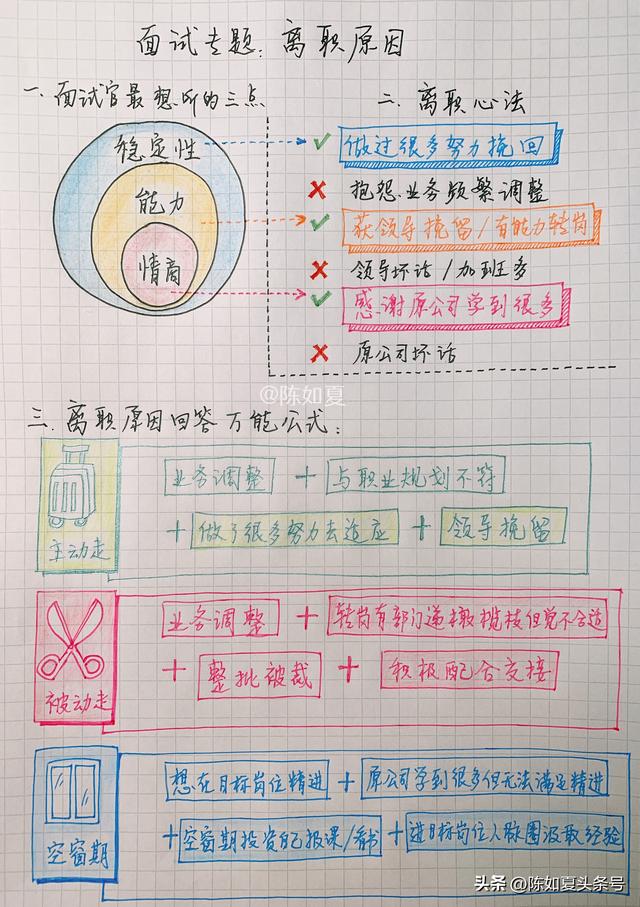 面试专题:离职原因
一、面试官最想听的三点
稳定性
能力
情商
二、离职心法
✓ 做过很多努力挽回
✗ 抱怨业务频繁调整
✓ 获领导挽留/有能力转岗
✗ 领导坏话/加班多
✓ 感谢原公司学到很多
✗ 原公司坏话
@陈如夏
三、离职原因回答万能公式:
主动走
业务调整 + 与职业规划不符
+ 做了很多努力去适应 + 领导挽留
被动走
业务调整 + 转岗有部门递橄榄枝但觉不合适
+ 整批被裁 + 积极配合交接
空窗期
想在目标岗位精进 + 原公司学到很多但无法满足精进
+ 空窗期投资自己报课/看书 + 进目标岗位人脉圈汲取经验
头条 @陈如夏头条号